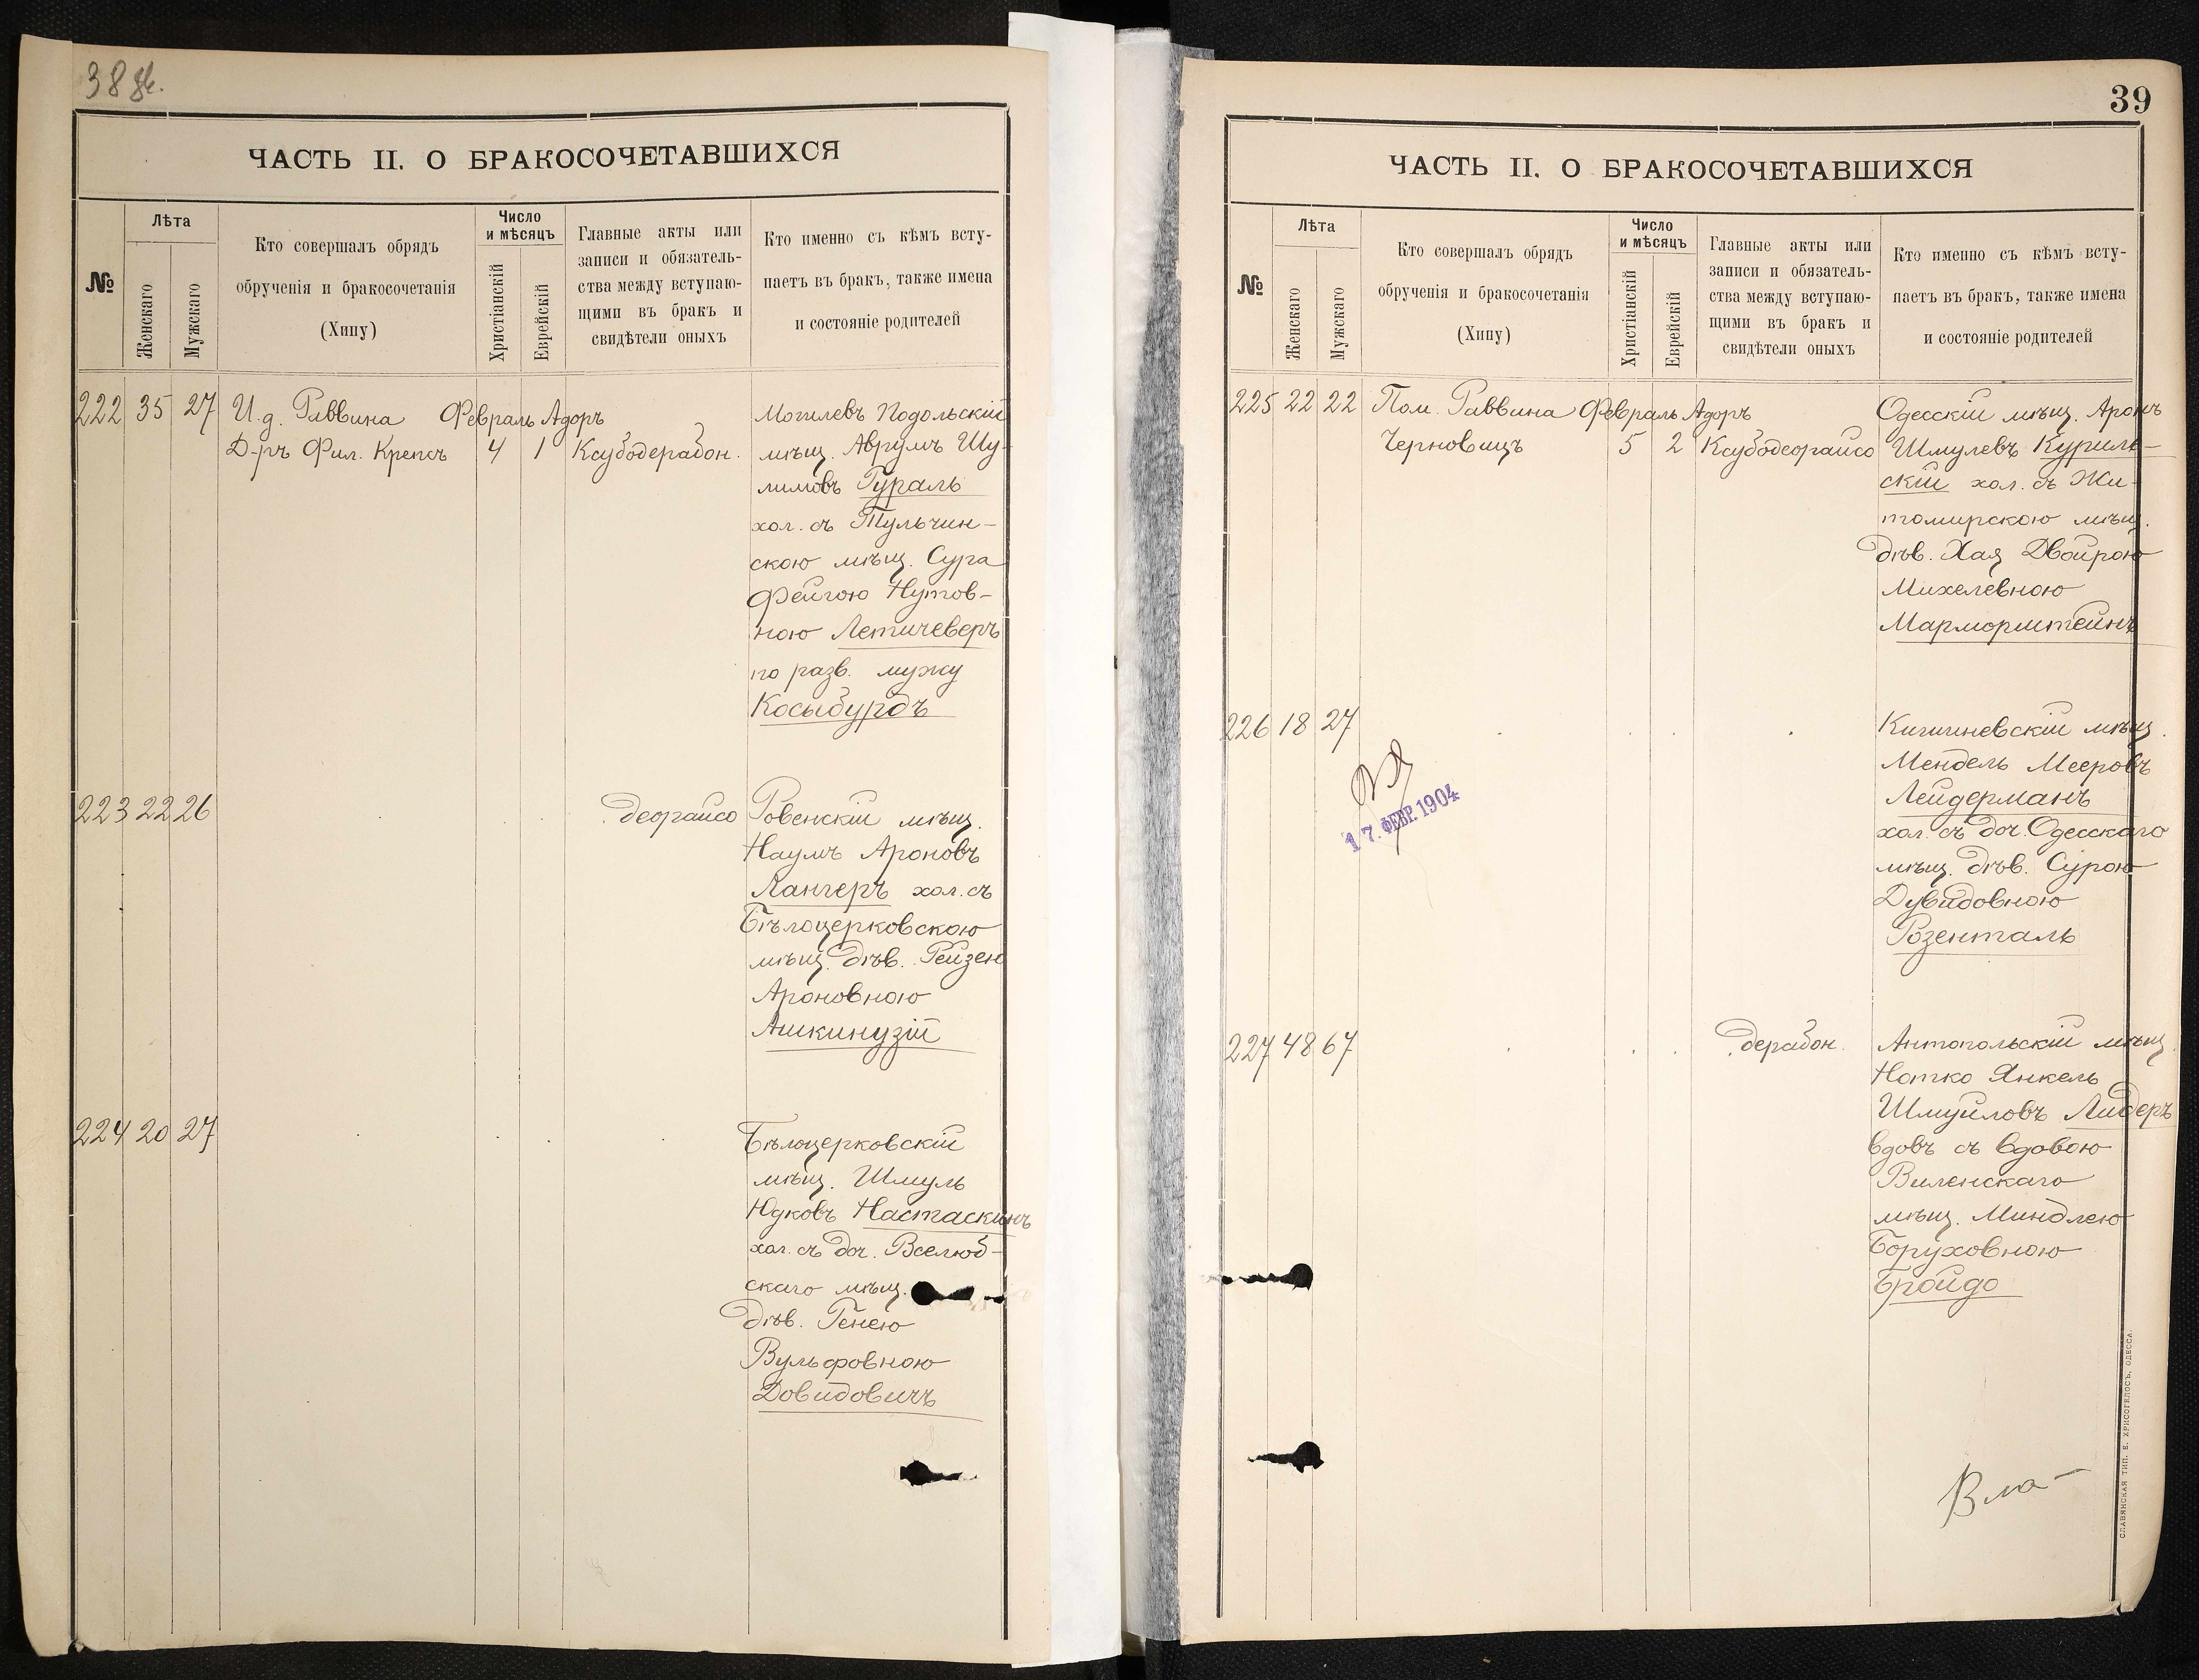 38 об.
ЧАСТЬ II. О БРАКОСОЧЕТАВШИХСЯ
№
Лѣта
Женскаго
Мужскаго
Кто совершалъ обрядъ
обрученія и бракосочетанія
(Хипу)
Число
и мѣсяцъ
Христіанскій
Еврейскій
Главные акты или
записи и обязатель-
ства между вступаю-
щими въ бракъ и
свидѣтели оныхъ
Кто именно съ кѣмъ всту-
паетъ въ бракъ, также имена
и состояніе родителей
222 35 27 И.д. Раввина Февраль Адоръ
Д-ръ Фил. Крепсъ 4 1 Ксубодерабон.
Могилевъ Подольскій
мѣщ. Аврумъ Шу-
лимовъ Гураль
хол. съ Тульчин-
скою мѣщ. Сура
Фейгою Нутов-
ною Летичеверъ
по разв. мужу
Косыбурдъ
223 22 26 . . . . деорайсо
Ровенскій мѣщ.
Наумъ Ароновъ
Лангеръ хол. съ
Бѣлоцерковскою
мѣщ. дѣв. Рейзею
Ароновною
Ашкинузій
224 20 27 . . . .
Бѣлоцерковскій
мѣщ. Шмуль
Юдковъ Настаскинъ
хол. съ доч. Вселюб-
скаго мѣщ.
дѣв. Генею
Вульфовною
Довидовичъ
39
ЧАСТЬ II. О БРАКОСОЧЕТАВШИХСЯ
№
Лѣта
Женскаго
Мужскаго
Кто совершалъ обрядъ
обрученія и бракосочетанія
(Хипу)
Число
и мѣсяцъ
Христіанскій
Еврейскій
Главные акты или
записи и обязатель-
ства между вступаю-
щими въ бракъ и
свидѣтели оныхъ
Кто именно съ кѣмъ всту-
паетъ въ бракъ, также имена
и состояніе родителей
225 22 22 Пом. Раввина Февраль Адоръ
Черновицъ 5 2 Ксубодеорайсо
Одесскій мѣщ. Аронъ
Шмулевъ Куриль-
скій хол. съ Жи-
томирскою мѣщ.
дѣв. Хая Двойрою
Михелевною
Марморштейнъ
226 18 27 . . . .
17. ФЕВР. 1904
Кишиневскій мѣщ.
Мендель Мееровъ
Лейдерманъ
хол. съ доч. Одесскаго
мѣщ. дѣв. Сурою
Дувидовною
Розенталь
227 48 67 . . . . дерабон.
Антопольскій мѣщ.
Нотко Янкель
Шмуйловъ Лидеръ
вдовъ съ вдовою
Виленскаго
мѣщ. Миндлею
Боруховною
Бройдо
Вла-
СЛАВЯНСКАЯ ТИП. Е. ХРИСОГЕЛОСЪ, ОДЕССА.